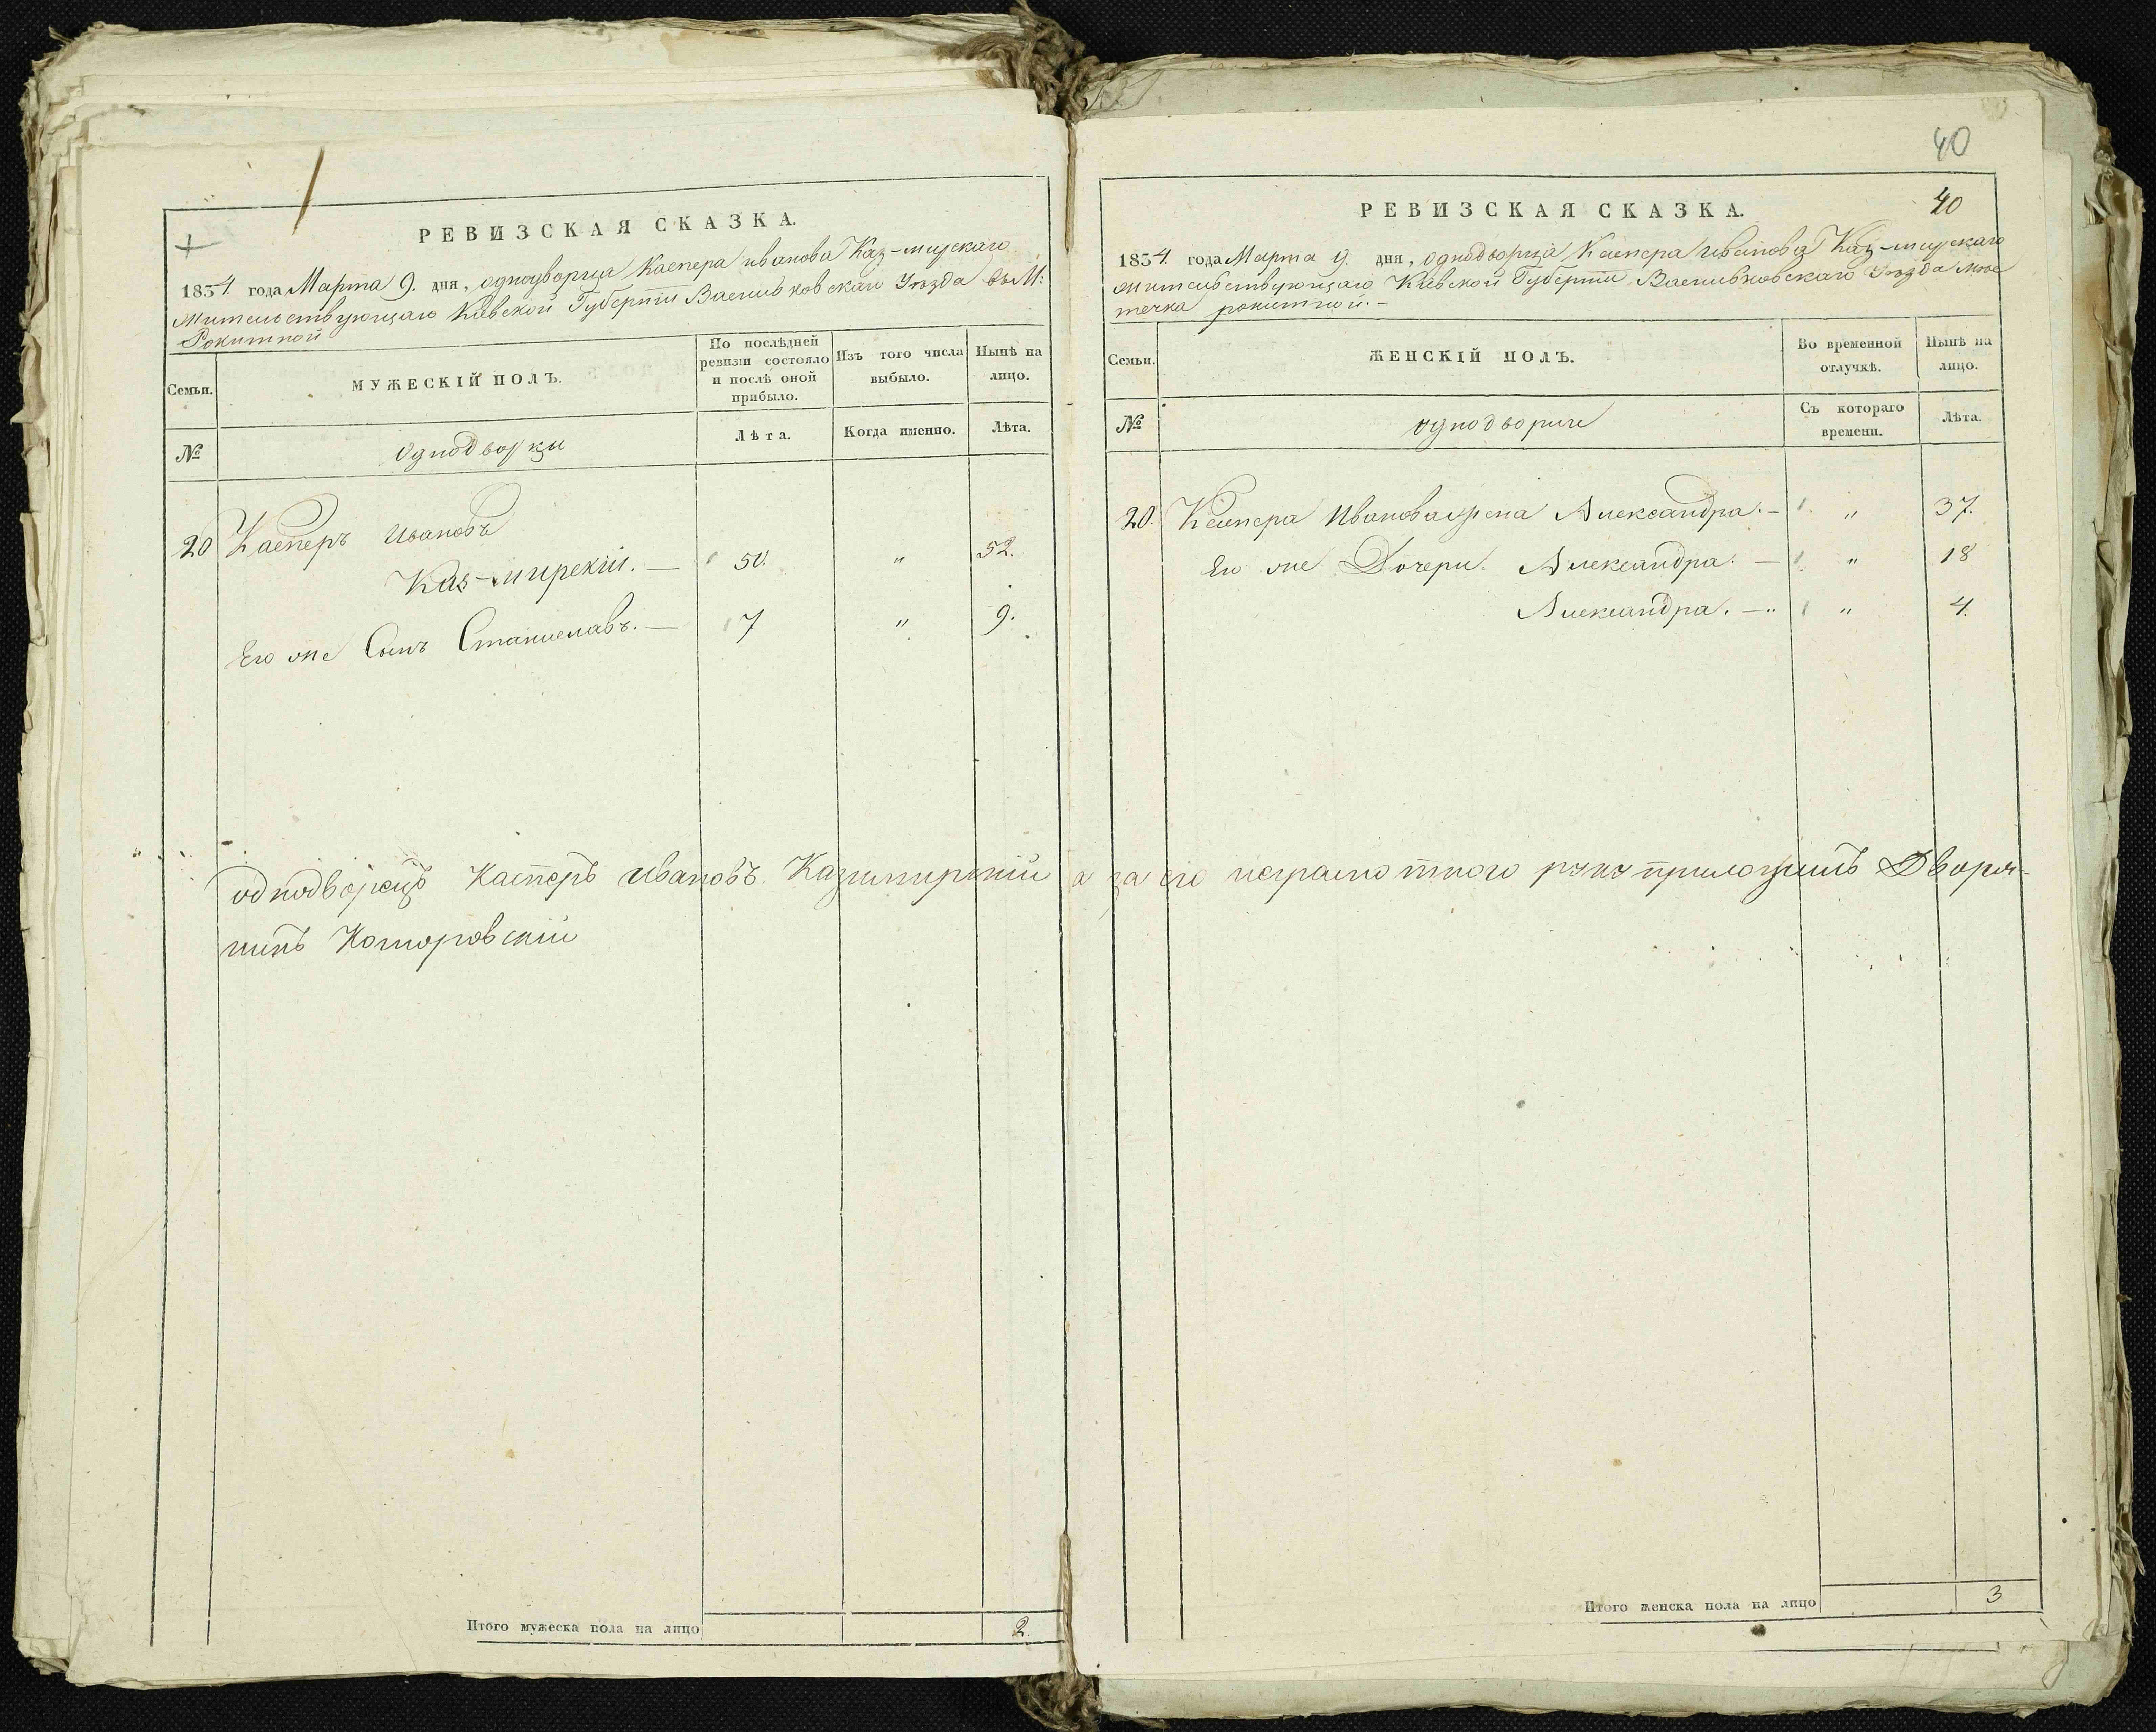 РЕВИЗСКАЯ СКАЗКА.
1834 года Марта 9. дня, однодворца Каспера иванова Каз-мирскаго
жительствующаго Кіевской Губерніи Васильковскаго Уѣзда въ М:
Рокитной
Семьи.
МУЖЕСКІЙ ПОЛЪ.
По послѣдней ревизіи состояло и послѣ оной прибыло.
Изъ того числа выбыло.
Нынѣ на лицо.
№
Однодворцы
Лѣта.
Когда именно.
Лѣта.
20 Касперъ Ивановъ
Каз-мирскій. — 50. " 52.
Его же Сынъ Станиславъ. — 7 " 9.
однодворецъ Касперъ Ивановъ Казимирский а за его неграмотного руку приложилъ Дворя-
нинъ Коморовский
Итого мужеска пола на лицо 2.
40
РЕВИЗСКАЯ СКАЗКА. 40
1834 года Марта 9. дня, однодворца Каспера Иванова Каз-мирскаго
жительствующаго Кіевской Губерніи Васильковскаго Уѣзда мѣс
течка рокитной. –
Семьи.
ЖЕНСКІЙ ПОЛЪ.
Во временной отлучкѣ.
Нынѣ на лицо.
№
Съ котораго времени.
Лѣта.
20. Каспера Иванова жена Александра. – " 37.
Его же Дочери. Александра. — " 18
Александра. — " 4.
Итого женска пола на лицо 3